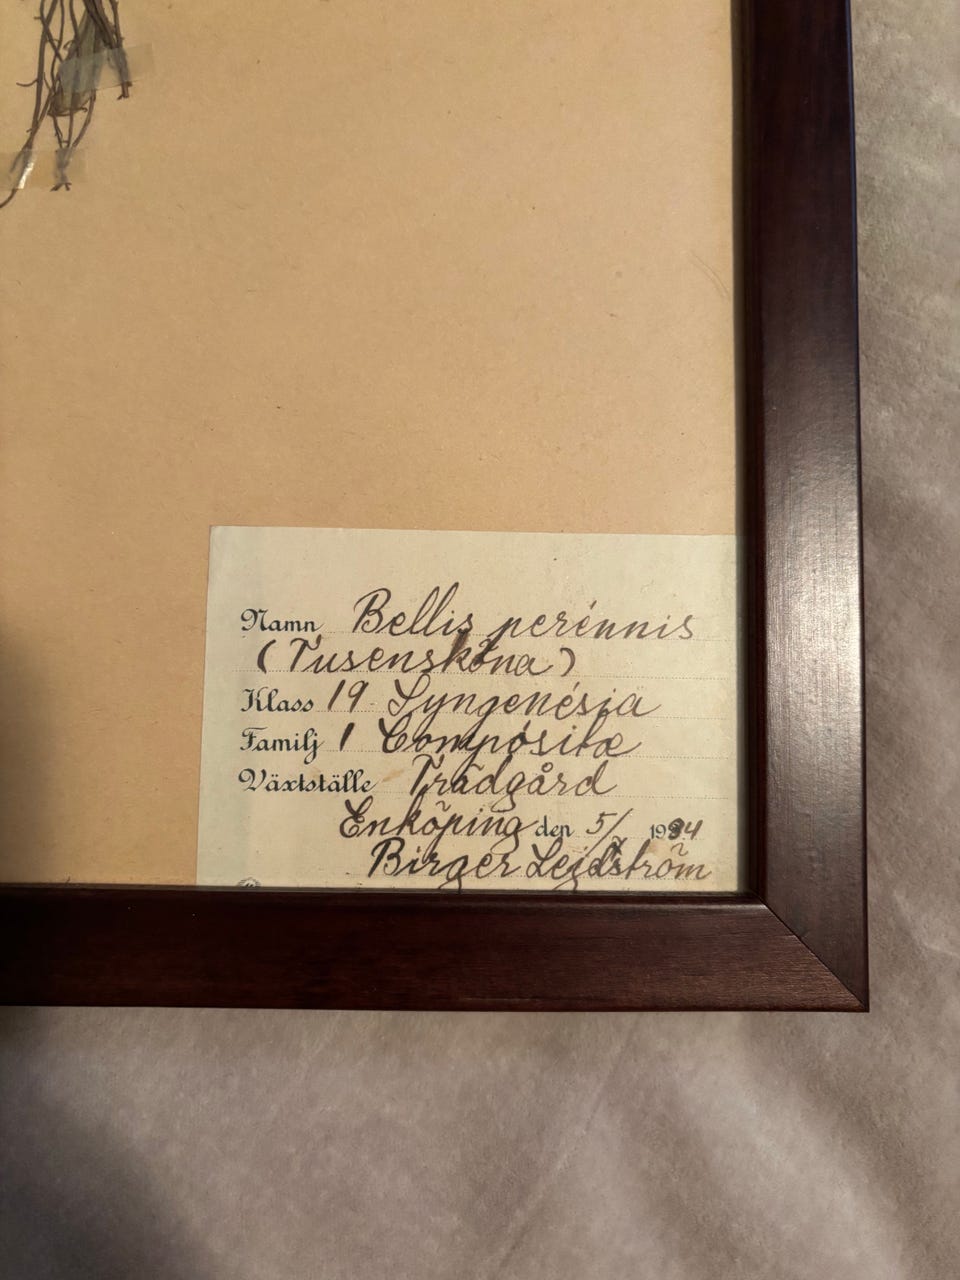 Namn Bellis perénnis
(Tusensköna)
Klass 19. Syngenésia
Familj 1 Compósitæ
Växtställe Trädgård
Enköping den 5/ 19
Birger